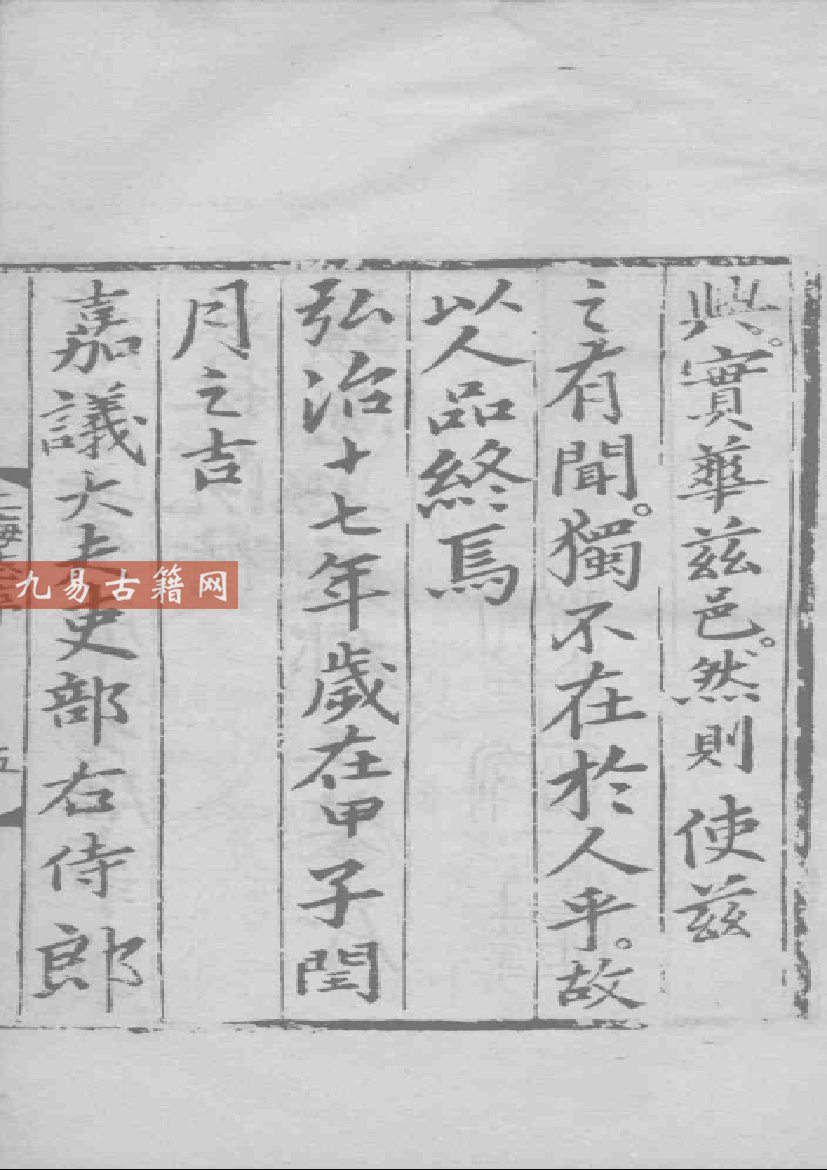 興。實華茲邑。然則使茲
之有聞。獨不在於人乎。故
以人品終焉
弘治十七年歲在甲子閏
月之吉
嘉議大夫吏部右侍郎
五
九易古籍网